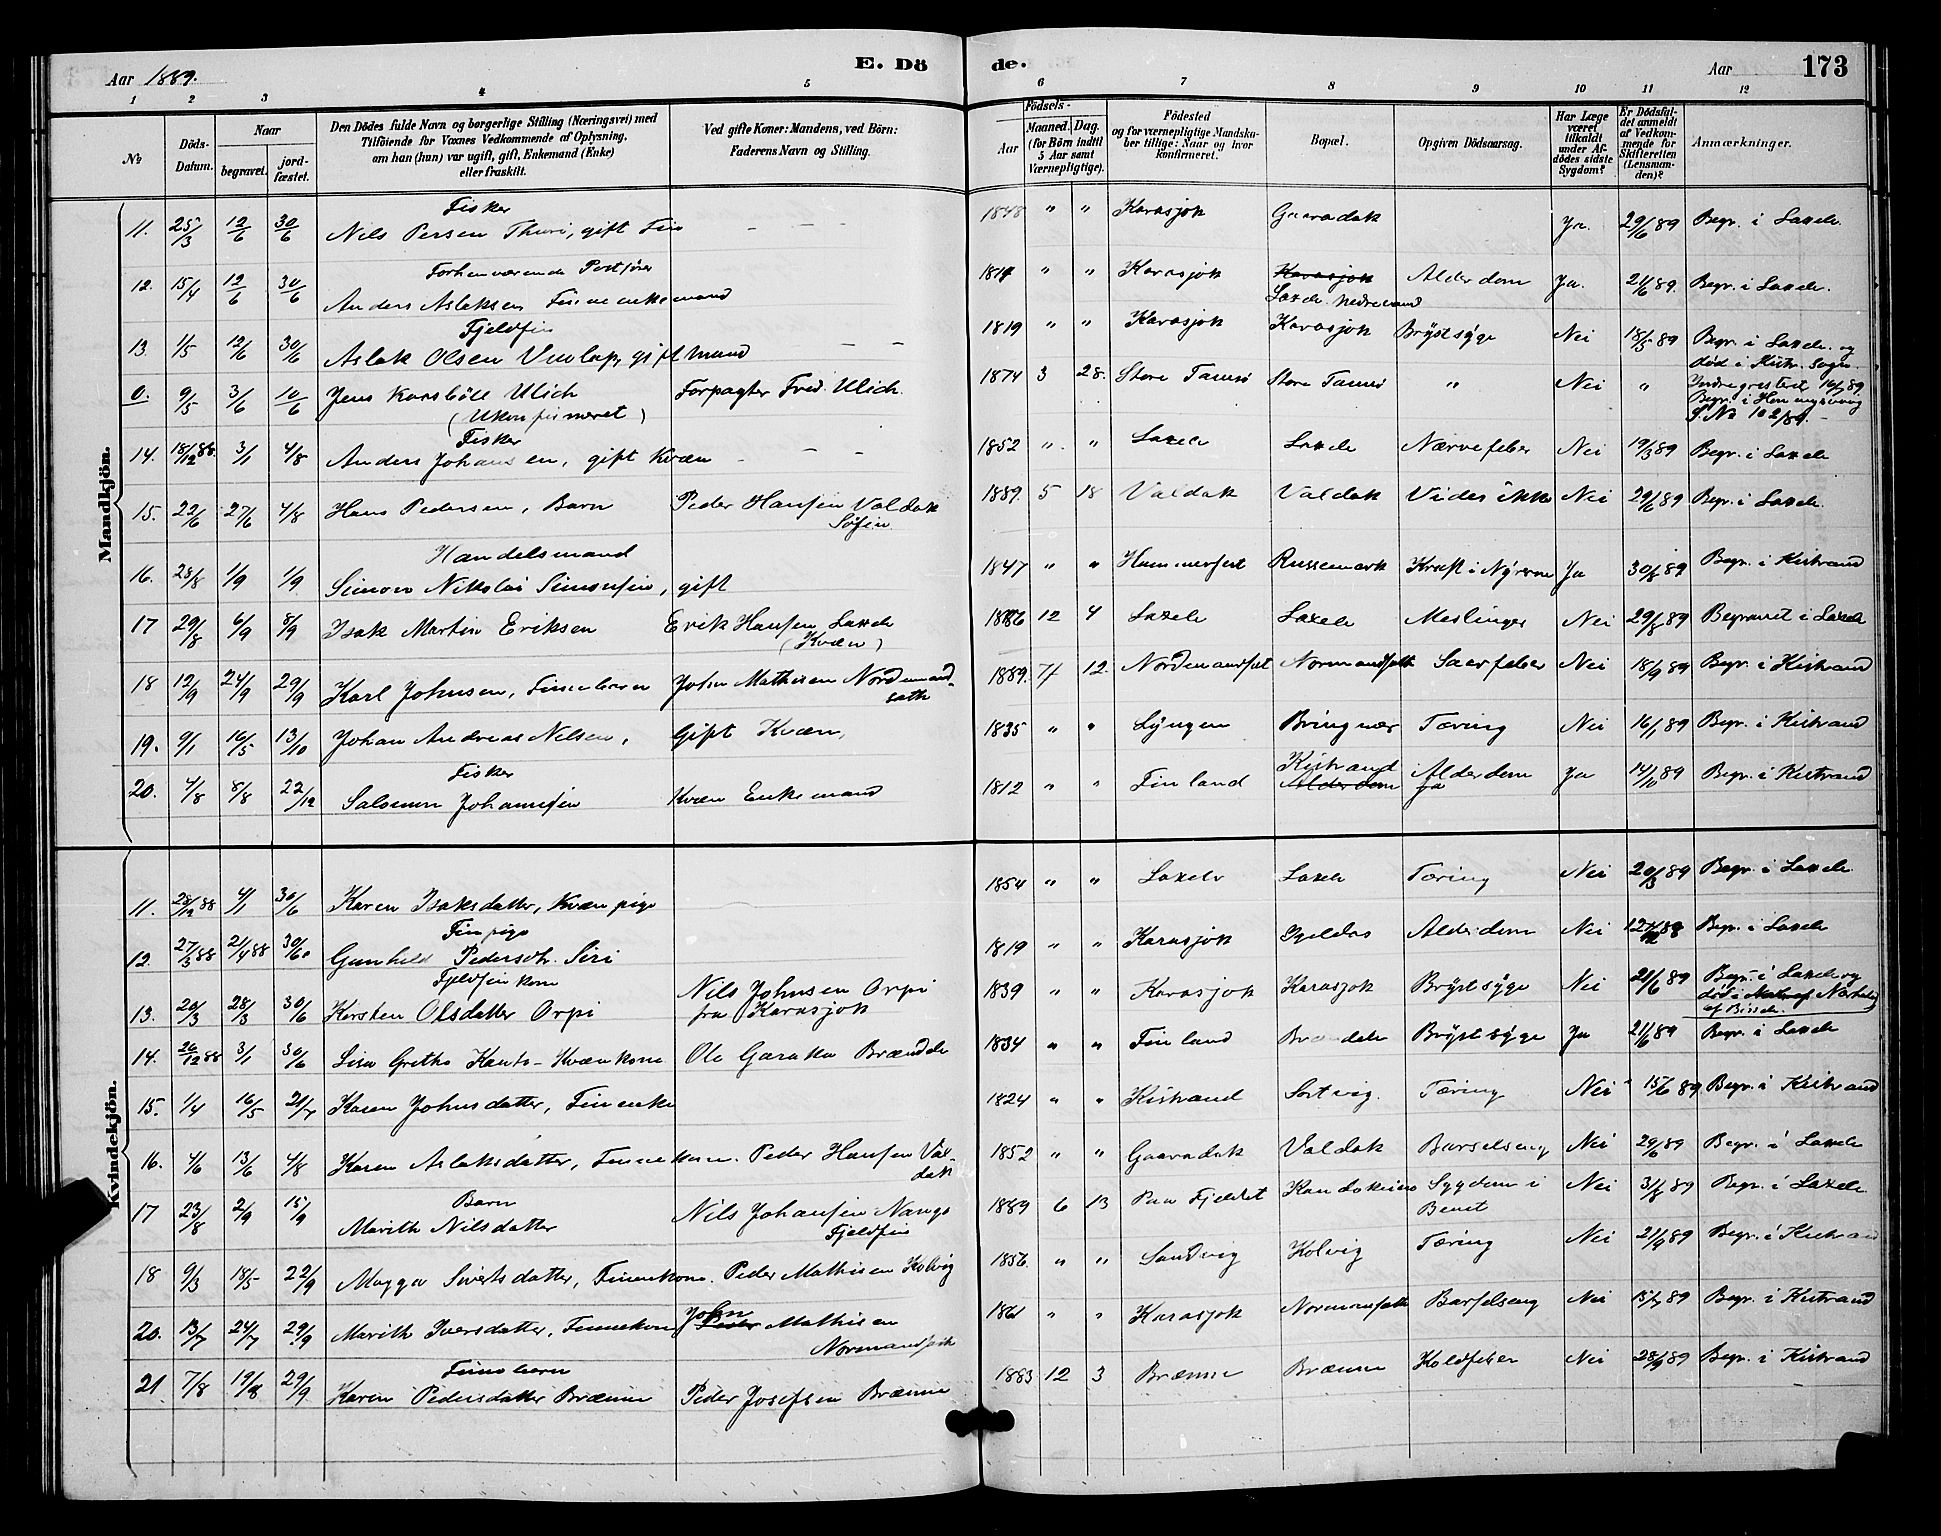 Aar 1889.
E. Dö
de.
Aar
173
1 2 3 4 5 6 7 8 9 10 11 12
№
Döds-Datum.
Naar
begravet.
jordfæstet.
Den Dödes fulde Navn og borgerlige Stilling (Næringsvei) med
Tilföiende for Voxnes Vedkommende af Oplysning,
om han (hun) var ugift, gift, Enkemand (Enke)
eller fraskilt.
Ved gifte Koner: Mandens, ved Börn:
Faderens Navn og Stilling.
Födsels-
Aar
Maaned. Dag.
(for Börn indtil
5 Aar samt
Værnepligtige).
Födested
og for værnepligtige Mandska-
ber tillige: Naar og hvor
konfirmeret.
Bopæl.
Opgiven Dödsaarsag.
Har Læge
været
tilkaldt
under Af-
dödes sidste
Sygdom?
Er Dödsfal-
det anmeldt
af Vedkom-
mende for
Skifteretten
(Lensman-
den)?
Anmærkninger.
Mandkjön.
Fisker
11. 25/3 12/6 30/6 Nils Persen Thuri, gift Fin - - - 1848 " " Karasjok Gaaradak Ja. 29/6 89 Begr. i Laxelv.
Forhenværende Postförer
12. 15/4 12/6 30/6 Anders Aslaksen Finne enkemand 1817 " " Karasjok Karasjok Alderdom Ja. 21/6 89. Begr. i Laxelv.
Laxelv. Nedrevand
Fjeldfin
13. 1/5 12/6 30/6 Aslak Olsen Vuolap, gift Mand - - 1819 " " Karasjok Karasjok Brystsÿge Nei 18/5 89 Begr. i Laxelv. og
død i Kistr. Sogn.
0. 9/5 3/6 10/6 Jens Karsböll Ulich Forpagter Fred. Ulich. 1874 3 28. Store Tamsö Store Tamsö " Nei " Indregistret 16/7 89.
(Ukonfirmeret) Begr. i Honningsvaag
S. No 102/89.
Fisker
14. 18/12 88. 3/1 4/8 Anders Johansen, gift Kvæn - - - 1852 " " Laxelv Laxelv Nærvefeber Nei 19/3 89 Begr. i Laxelv
15. 22/6 27/6 4/8 Hans Pedersen, Barn Peder Hansen Valdak 1889. 5 18 Valdak Valdak Vides ikke Nei 29/6 89 Begr. i Laxelv.
Søfin.
Handelsmand
16. 28/8 1/9 1/9 Simon Nikolai Simonsen, gift 1847 " " Hammerfest Russemark Kræft i Nÿrerne Ja 30/8 89 Begr. i Kistrand
17 29/8 6/9 8/9 Isak Martin Eriksen Erik Hansen Laxelv 1886 12 4 Laxelv Laxelv Meslinger Nei 29/8 89 Begravet i Laxelv
(Kvæn)
18 12/9 24/9 29/9 Karl Johnsen, Finnebarn John Mathisen Nordmand- 1889. 7 12. Nordmandset Normandsett Nei 18/9 89 Begr. i Kistrand
seth
19. 9/1 16/5 13/10 Johan Andreas Nilsen, Gift Kvæn, 1835 " " Lÿngen Bringnær Tæring Nei 16/1 89 Begr. i Kistrand
Fisker Kistrand
20. 4/8 8/8 22/12 Salomon Johannesen Kvæn Enkemand 1812 " " Finland Alderdom Alderdom Ja 14/10 89 Begr. i Kistrand
Ja
Kvindekjön.
11. 28/12 88 4/1 30/6 Karen Isaksdatter, Kvænpige 1854 " " Laxelv Laxelv Tæring Nei 20/3 89 Begr. i Laxelv.
Finpige
12. 27/3 88 21/4 88 30/6. Gunhild Pedersdtr. Siri 1819 " " Karasjok Alderdom Nei Begr. i Laxelv
Fjeldfinkone
13. 20/3 28/3 30/6 Kersten Olsdatter Orpi Nils Johnsen Orpi 1839 " " Karasjok Karasjok Brÿstsÿge Nei 21/6 89 Begr. i Laxelv og
fra Karasjok
14. 26/12 88 3/1 30/6 Lisa Gretha Kants- Kvænkone Ole Garaka Brændelv 1834 " " Finland Brændelv Brÿstsÿge Ja 21/6 89 Begr. i Laxelv
15. 1/4 16/5 21/7 Karen Johnsdatter, Finenke 1824 " " Kistrand Sortvig. Tæring Nei 15/6 89. Begr. i Kistrand
16. 4/6 13/6 4/8 Karen Aslaksdatter, Finnekone. Peder Hansen Val- 1852 " " Gaaradak Valdak Barselseng Nei 29/6 89 Begr. i Laxelv
dak
Barn
17 23/8 2/9 15/9 Marith Nilsdatter Nils Johansen Nango 1889 6 13 Paa Fjeldet Kautokeino Sygdom i Nei 31/8 89 Begr. i Laxelv.
Fjeldfin Benet
18 9/3 18/5 22/9 Magga Sivertsdatter, Finnekone. Peder Mathisen Kolvig 1856. " " Sandvig Kolvig Tæring Nei 21/9 89 Begr. i Kistrand
20. 13/7 24/7 29/9 Marith Iversdatter, Finnekone John Peder Mathisen 1861 " " Karasjok Normansett Barselseng Nei 15/7 89 Begr. i Kistrand
Normandseth
Finnebarn
21 7/8 19/8 29/9 Karen Pedersdatter Brænne Peder Josefsen Brænne 1883 12 3 Brænne Brænne Koldfeber Nei 28/9 89 Begr. i Kistrand